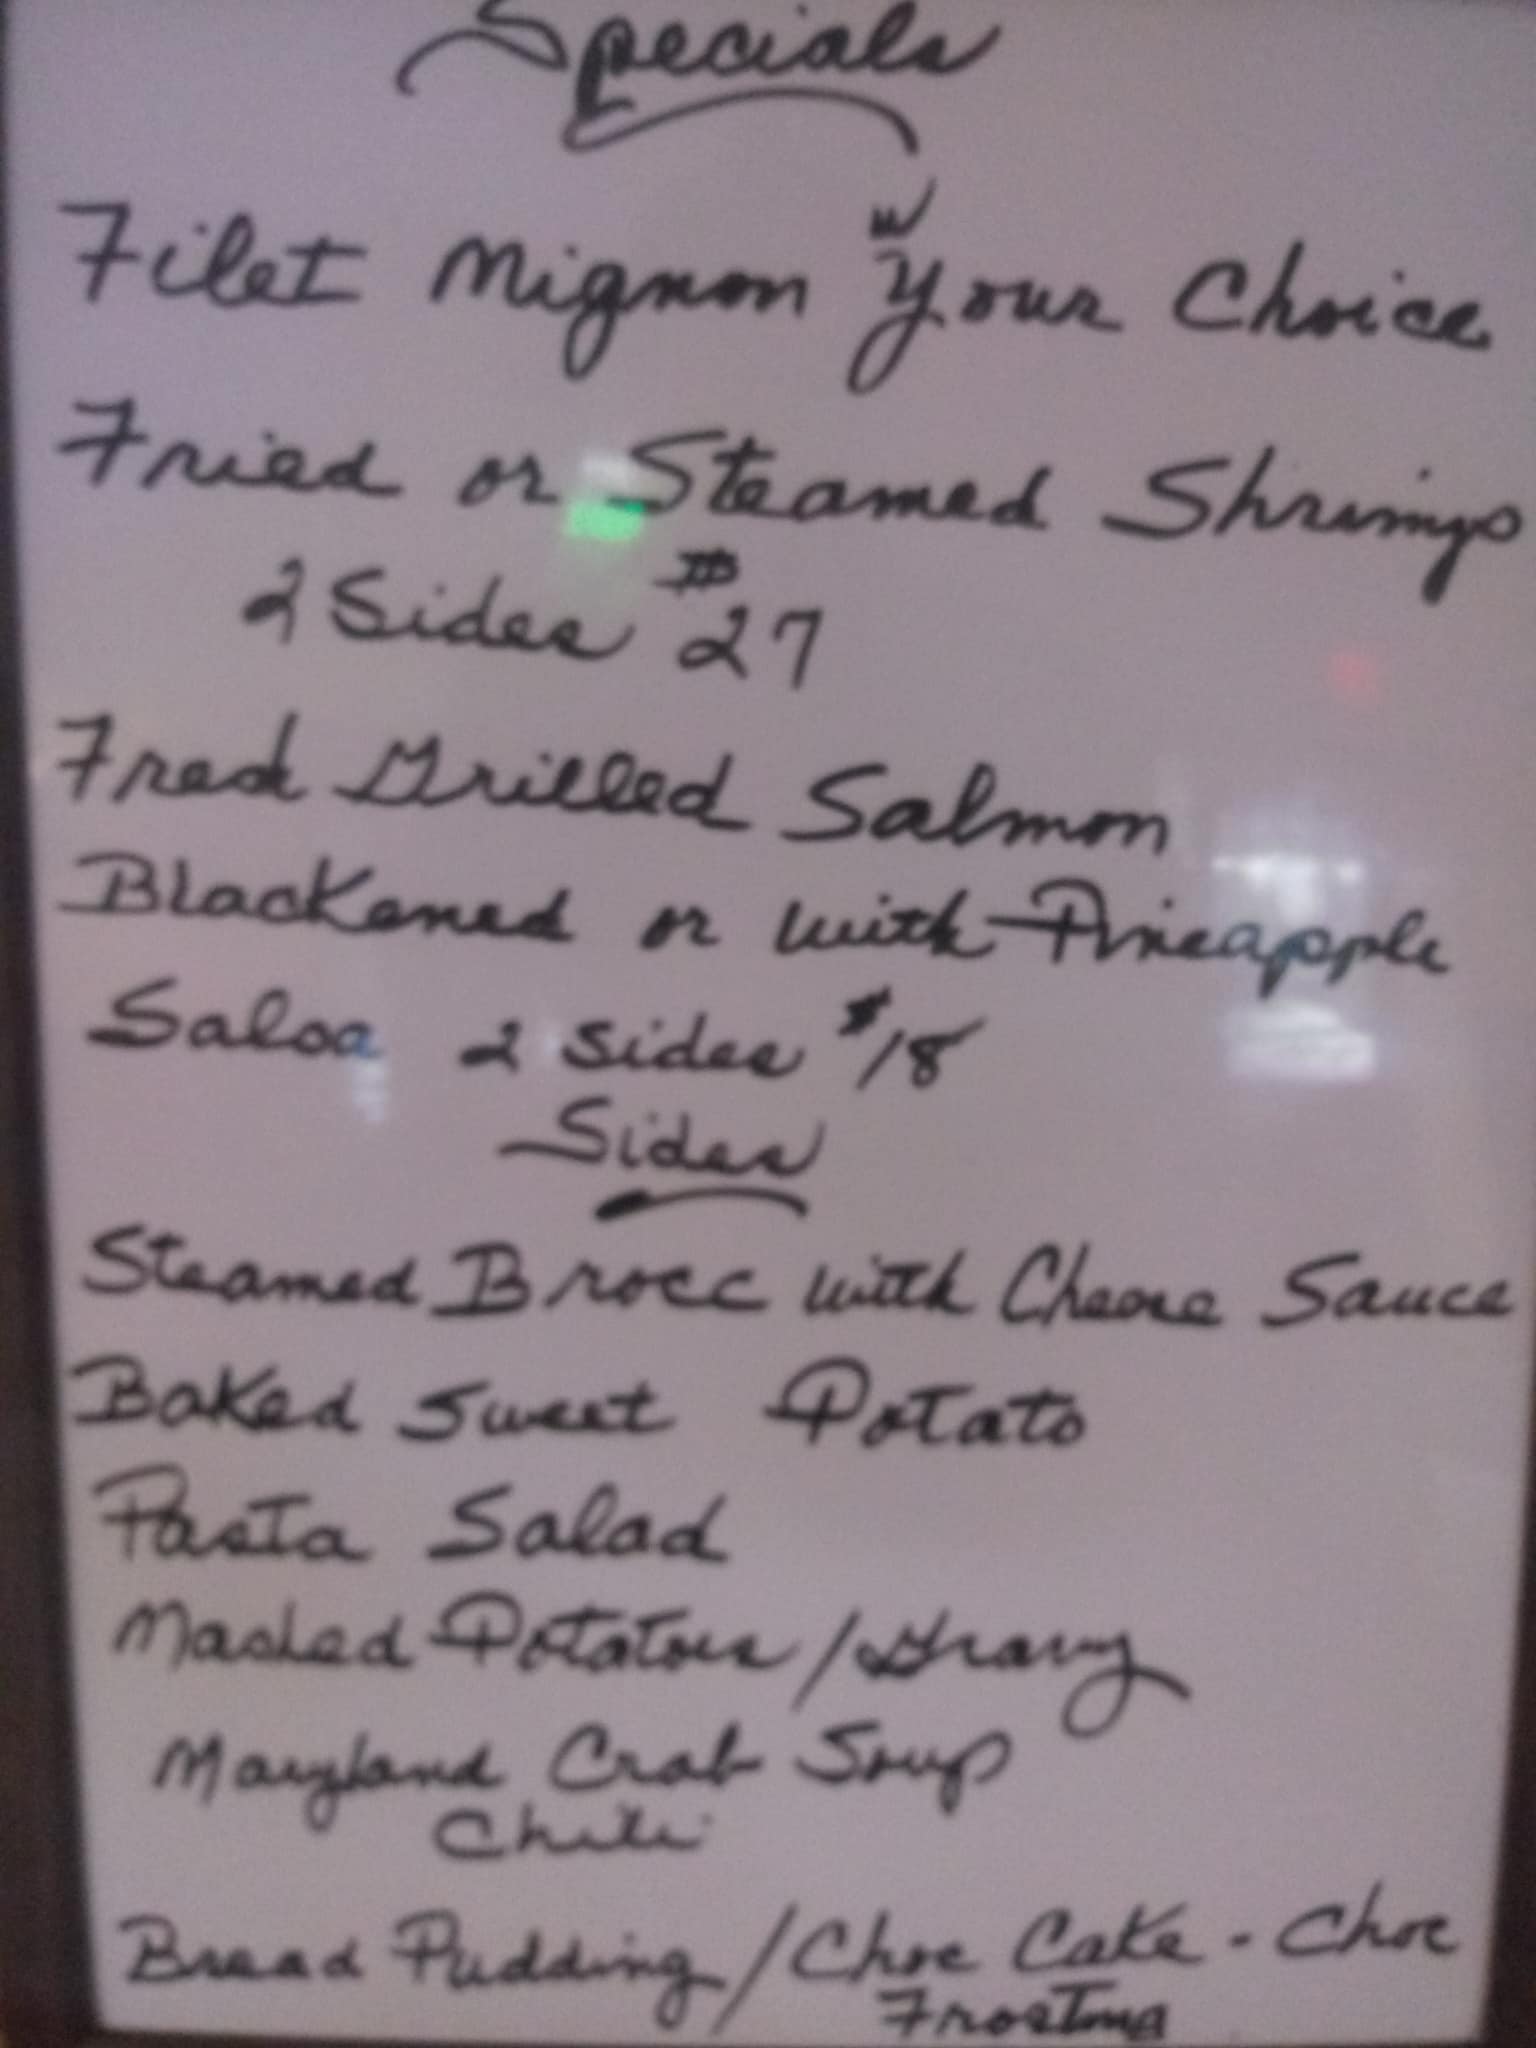 Specials
Filet Mignon w/ Your Choice
Fried or Steamed Shrimp
2 Sides $27
Fresh Grilled Salmon
Blackened or with Pineapple
Salsa 2 sides $18
Sides
Steamed Brocc with Cheese Sauce
Baked Sweet Potato
Pasta Salad
Mashed Potatoes / Gravy
Maryland Crab Soup
Chili
Bread Pudding / Choc Cake - Choc
Frosting